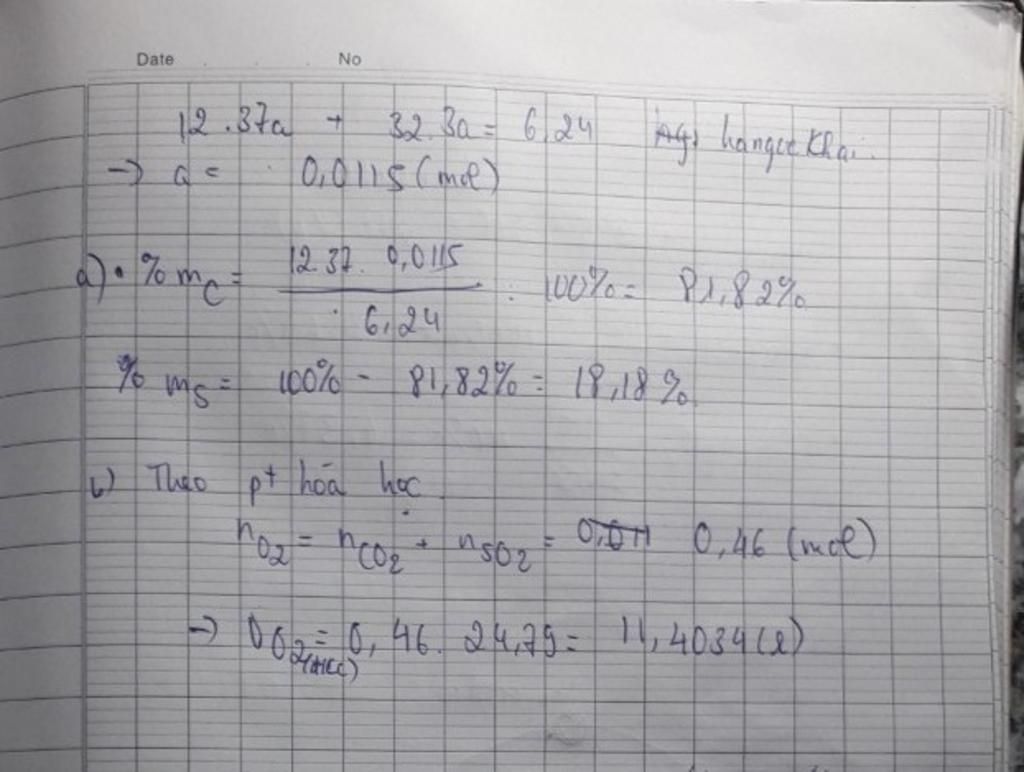 Date No
12.37a + 32.3a = 6,24 hangcekhai
-> a = 0,0115 (mol)
a) • % mC = 12.37. 0,0115 / 6,24 . 100% = 81,82%
% mS = 100% - 81,82% = 18,18%
b) Theo pt hóa học
nO2 = nCO2 + nSO2 = 0,46 (mol)
-> VO2(đkc) = 0,46. 24,79 = 11,4034 (l)